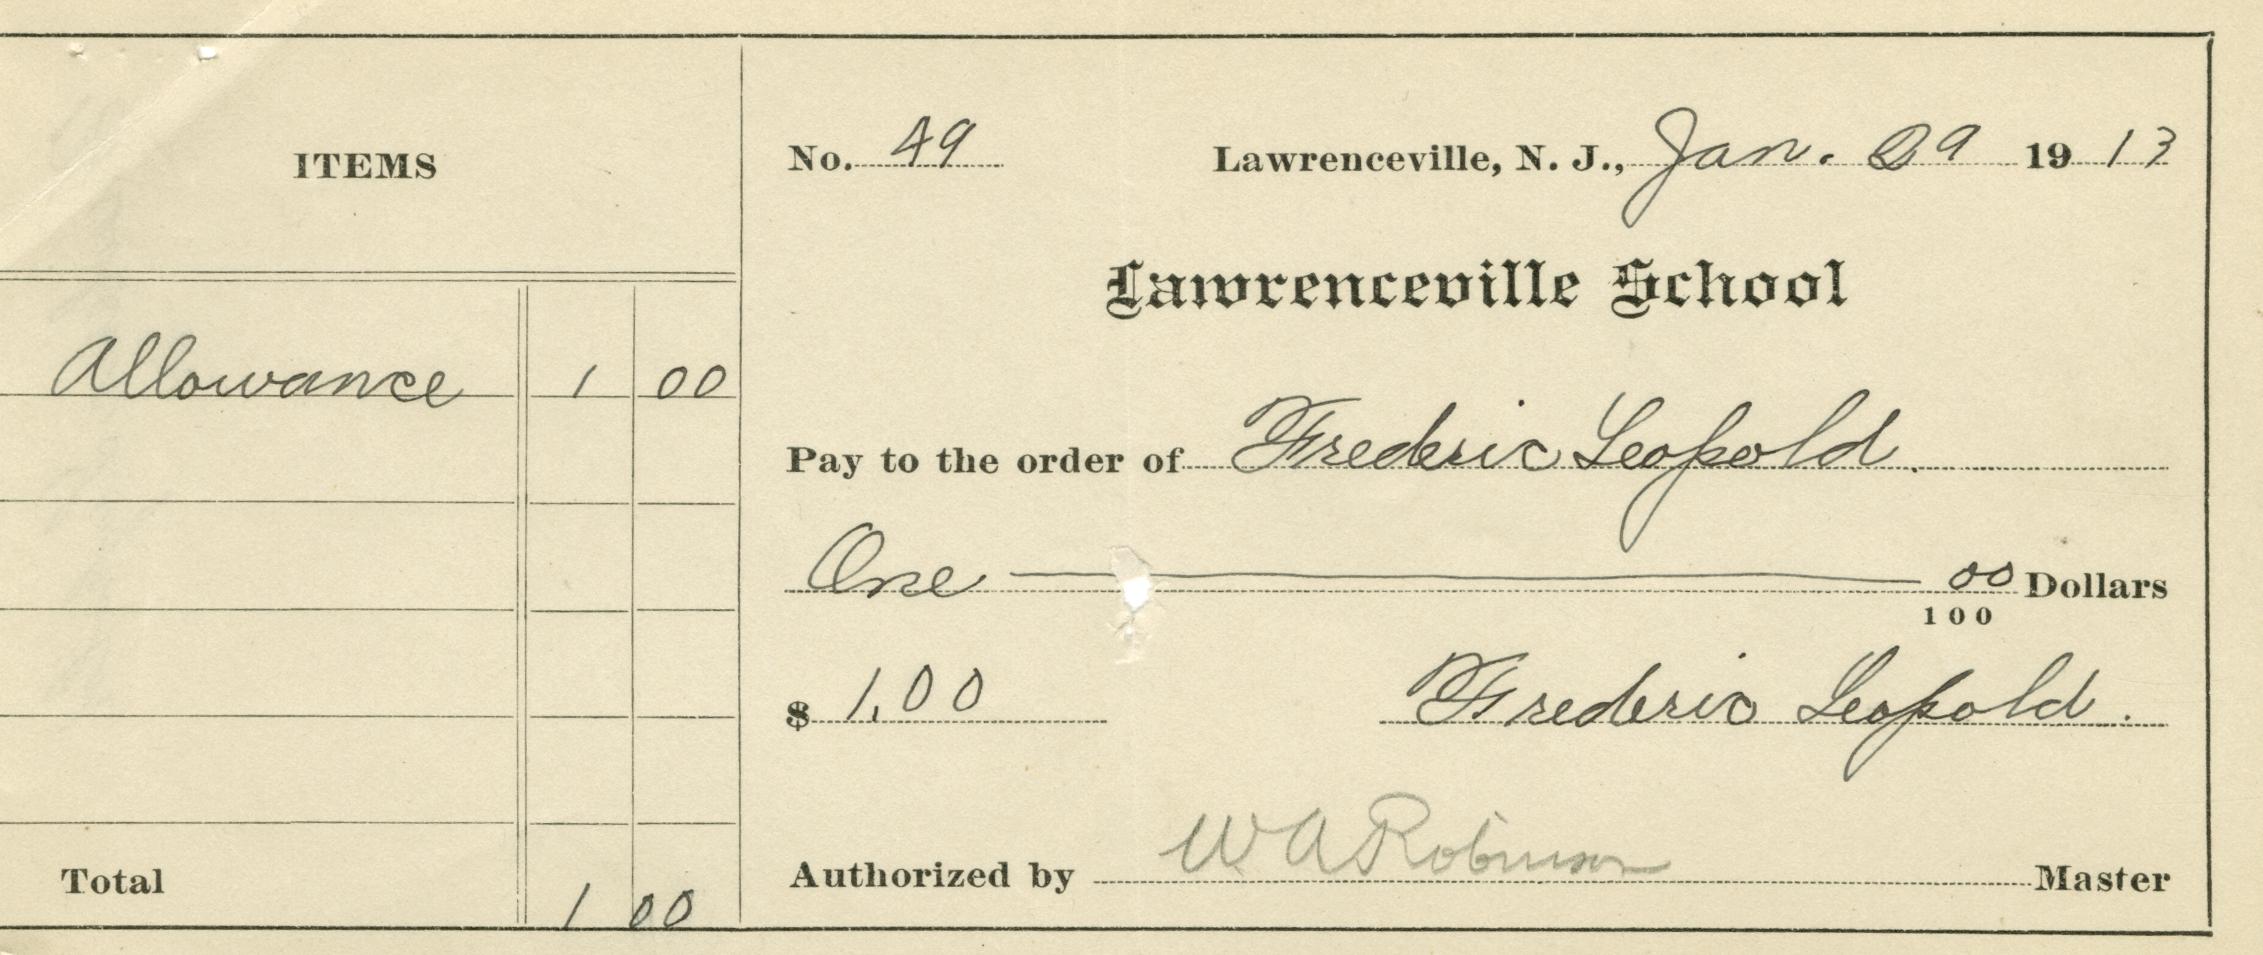 ITEMS
Allowance 1 00
Total 1 00
No. 49 Lawrenceville, N. J., Jan. 29 1913
Lawrenceville School
Pay to the order of Frederic Leopold.
One 00/100 Dollars
$ 1.00 Frederic Leopold.
Authorized by W A Robinson Master